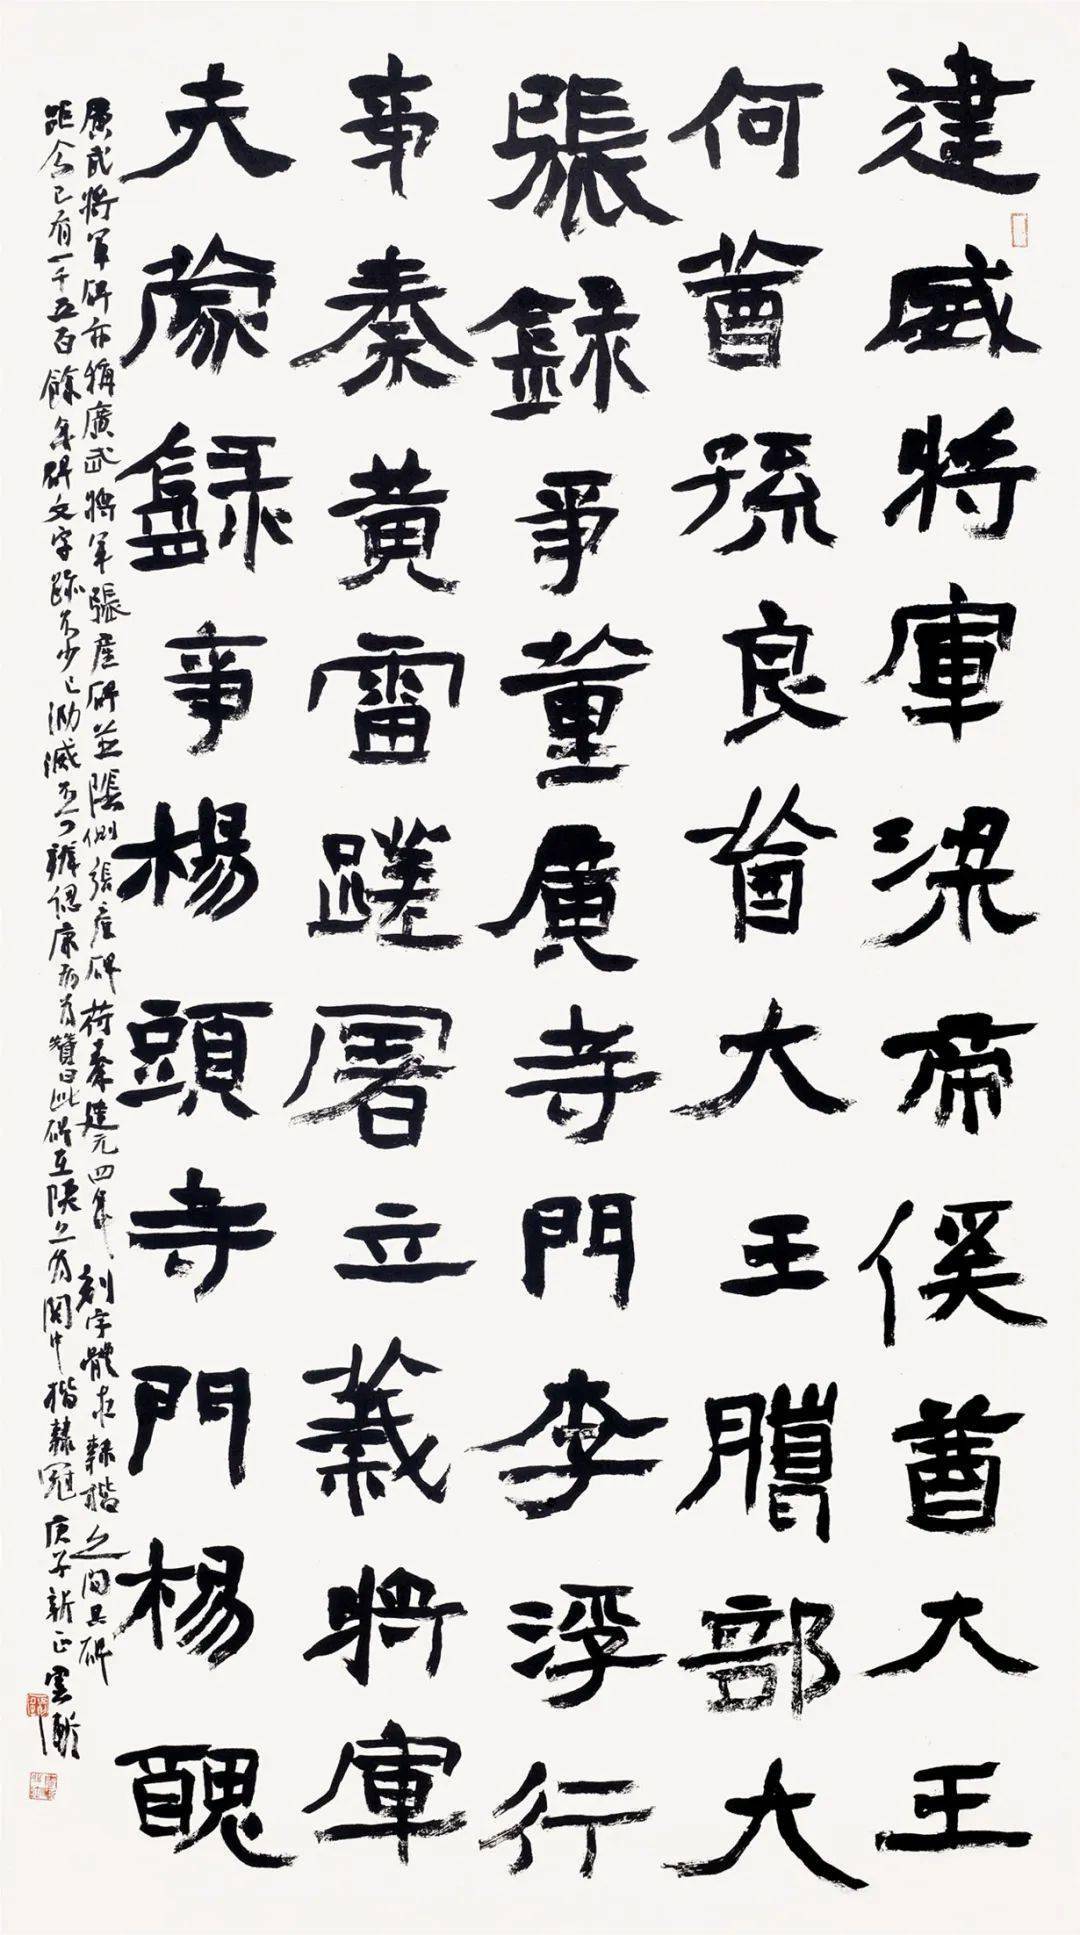 建威將軍梁帝傒酋大王
何酋孫良酋大王腾部大
張録事董廣寺門李浮行
事秦黄雷蹉屠立義將軍
夫蒙録事楊頭寺門楊醜
廣武將軍碑亦稱廣武將軍張産碑並陰側張産碑苻秦建元四年刻字體在隸楷之间其碑
距今已有一千五百餘年碑文字跡不少已泐滅不可辨認康有爲贊曰此碑在陕亦爲関中楷隸冠庚子新正